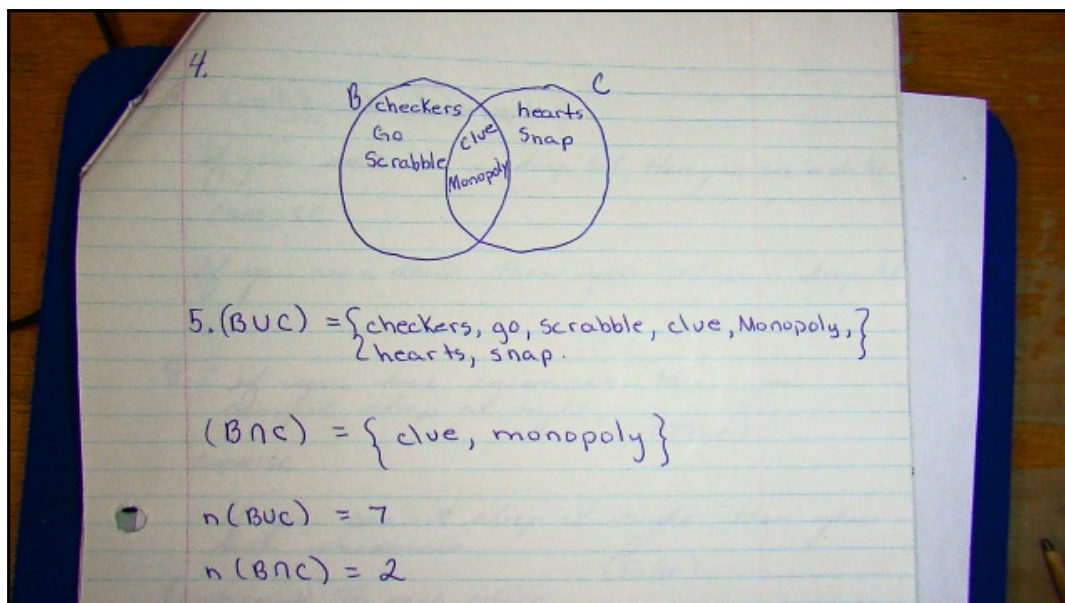 4.
B C
checkers
Go
Scrabble
clue
Monopoly
hearts
Snap
5. (B∪C) = {checkers, go, scrabble, clue, Monopoly,}
hearts, snap.
(B∩C) = { clue, monopoly }
n(B∪C) = 7
n(B∩C) = 2